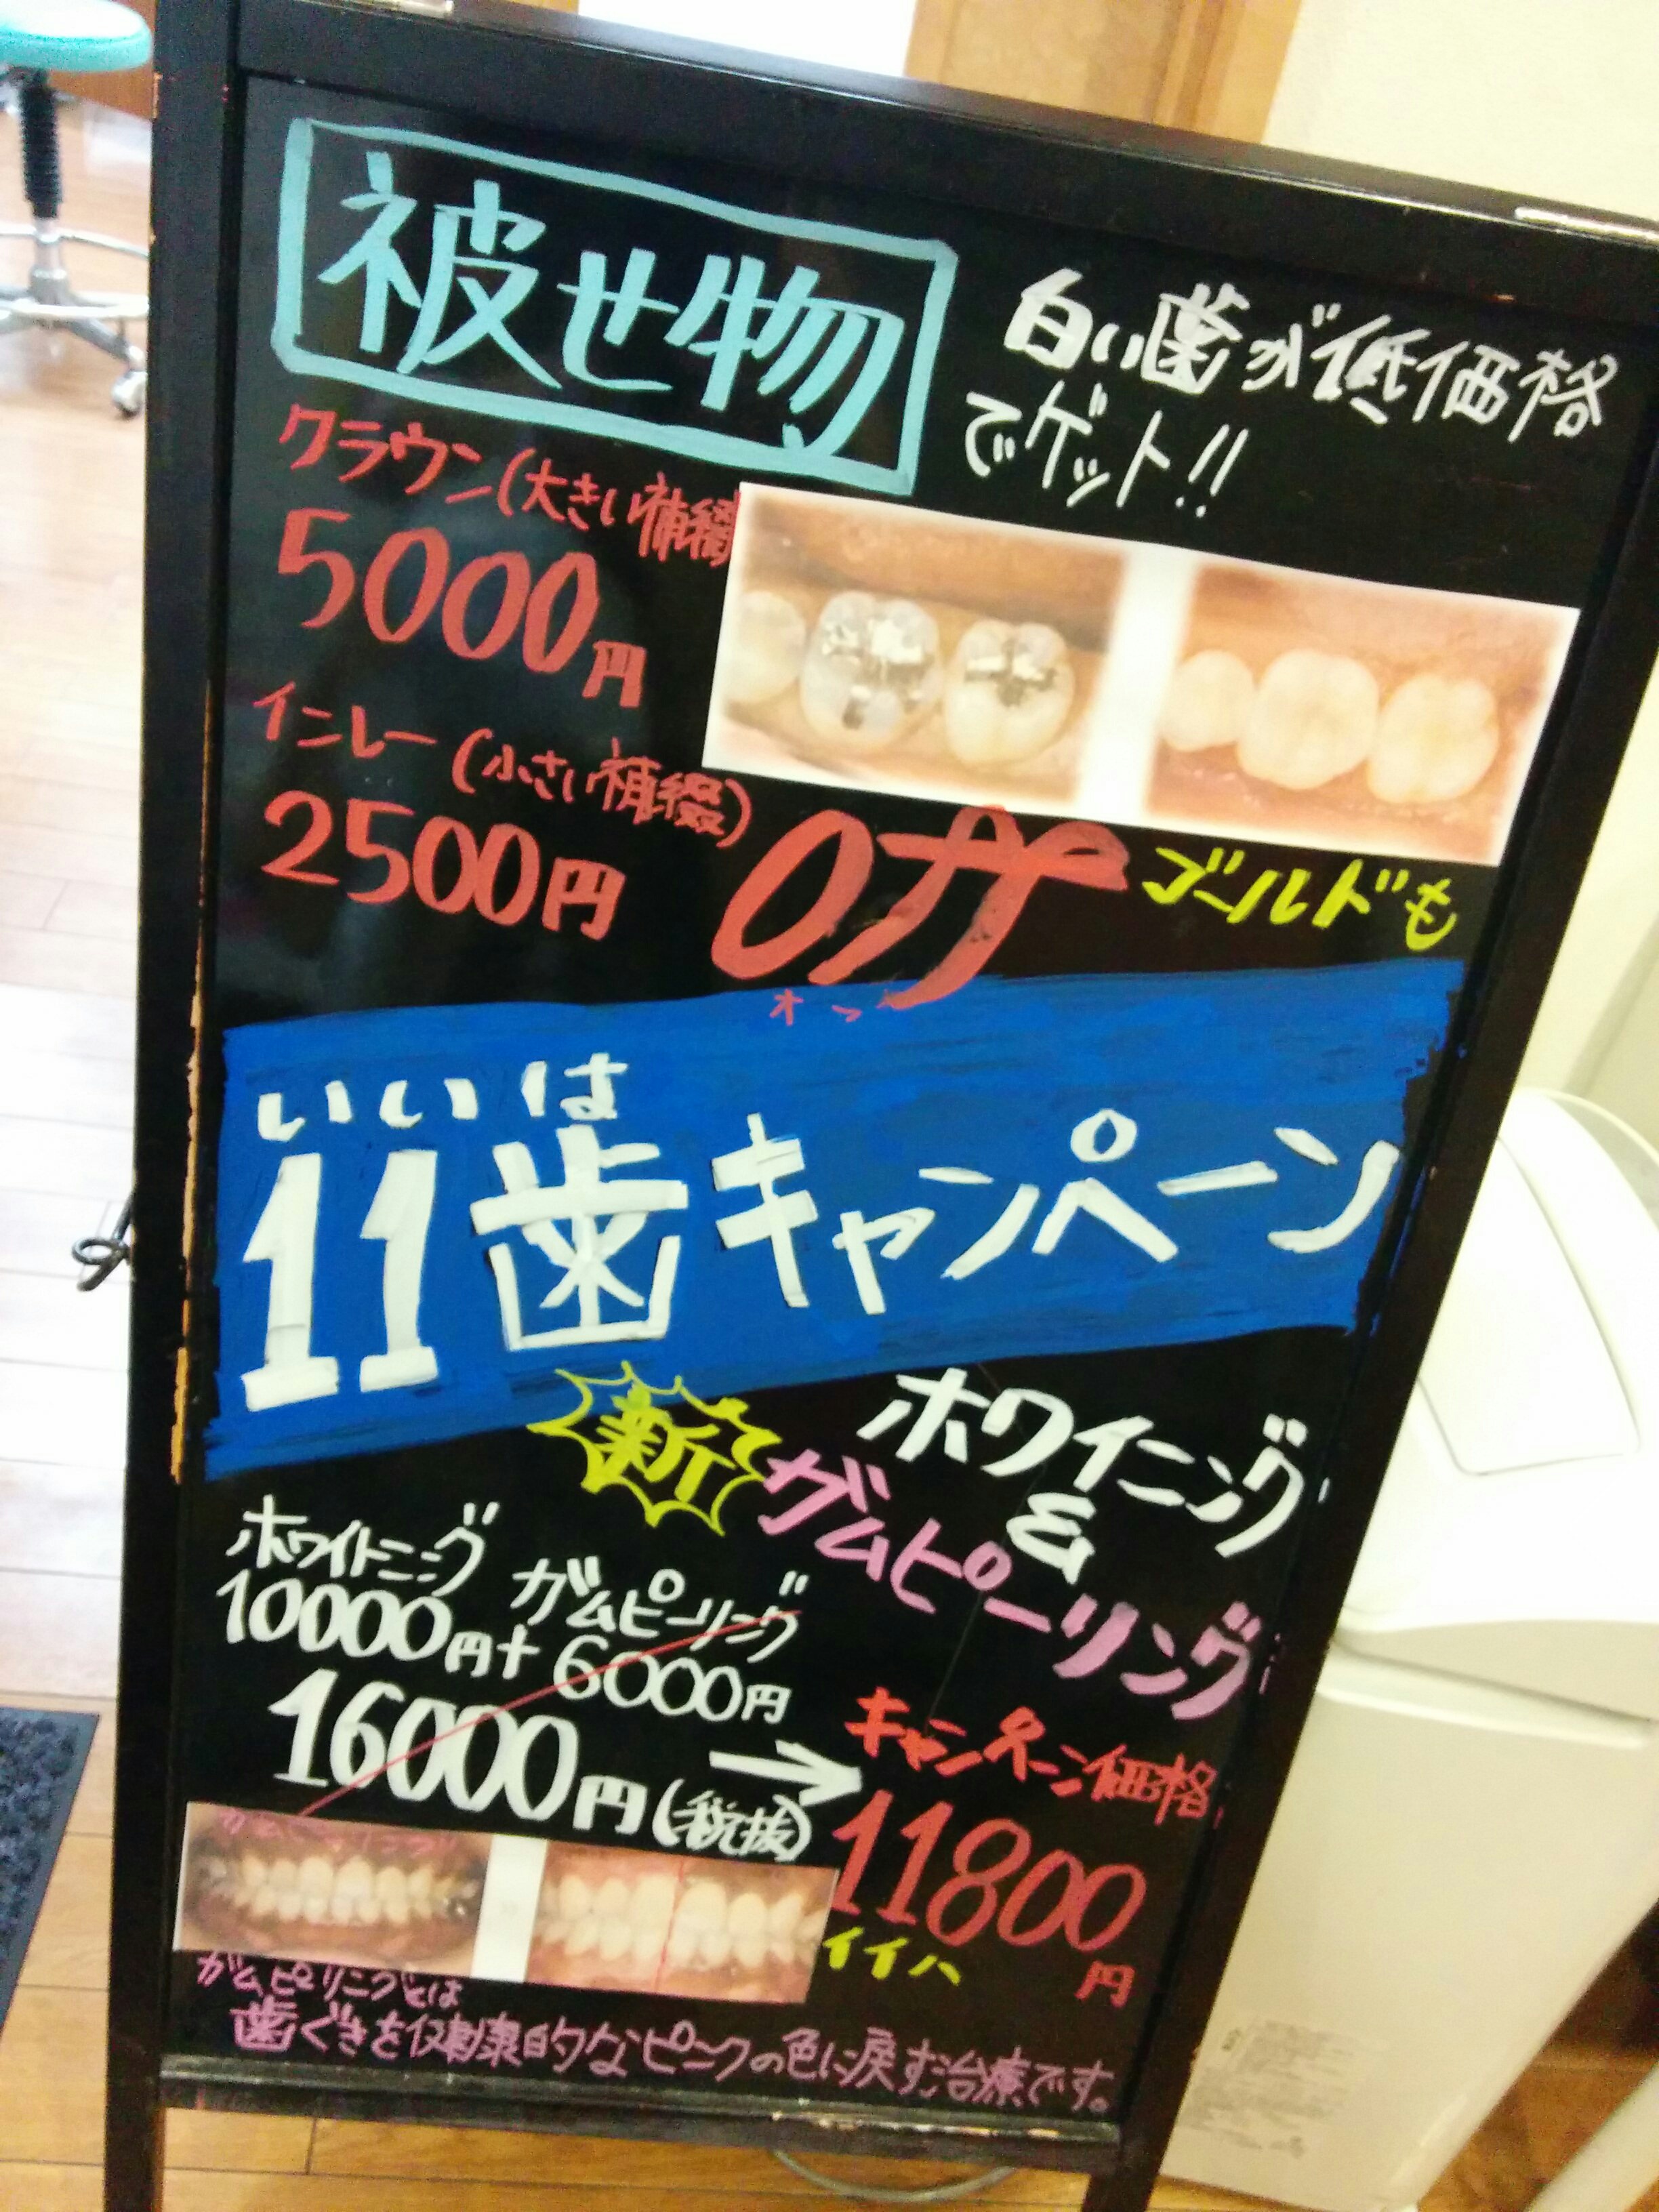 被せ物
白い歯が低価格
でゲット!!
クラウン(大きい補綴
5000円
インレー(小さい補綴)
2500円
オフ
オフ
ゴールドも
いい は
11歯キャンペーン
新
ホワイニング
&
ガムピーリング
ホワイトニング ガムピーリング
10000円+6000円
16000円(税抜)→
キャンペーン価格
11800円
イイハ
ガムピーリングとは
歯ぐきを健康的なピンクの色に戻す治療です。